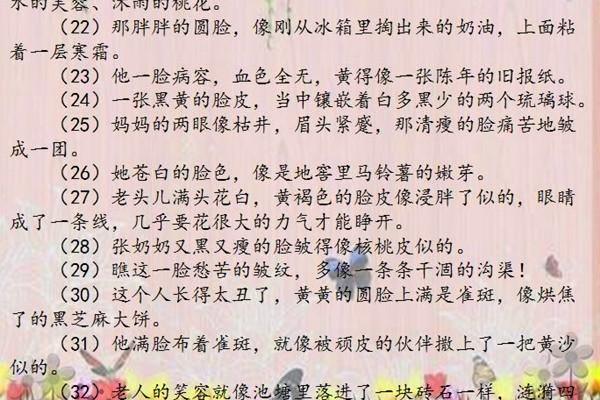 水的芙蓉、沐雨的桃花。
（22）那胖胖的圆脸，像刚从冰箱里掏出来的奶油，上面粘
着一层寒霜。
（23）他一脸病容，血色全无，黄得像一张陈年的旧报纸。
（24）一张黑黄的脸皮，当中镶嵌着白多黑少的两个琉璃球。
（25）妈妈的两眼像枯井，眉头紧蹙，那清瘦的脸痛苦地皱
成一团。
（26）她苍白的脸色，像是地窖里马铃薯的嫩芽。
（27）老头儿满头花白，黄褐色的脸皮像浸胖了似的，眼睛
成了一条线，几乎要花很大的力气才能睁开。
（28）张奶奶又黑又瘦的脸皱得像核桃皮似的。
（29）瞧这一脸愁苦的皱纹，多像一条条干涸的沟渠！
（30）这个人长得太丑了，黄黄的圆脸上满是雀斑，像烘焦
了的黑芝麻大饼。
（31）他满脸布着雀斑，就像被顽皮的伙伴撒上了一把黄沙
似的。
（32）老人的笑容就像池塘里落进了一块砖石一样，涟漪四